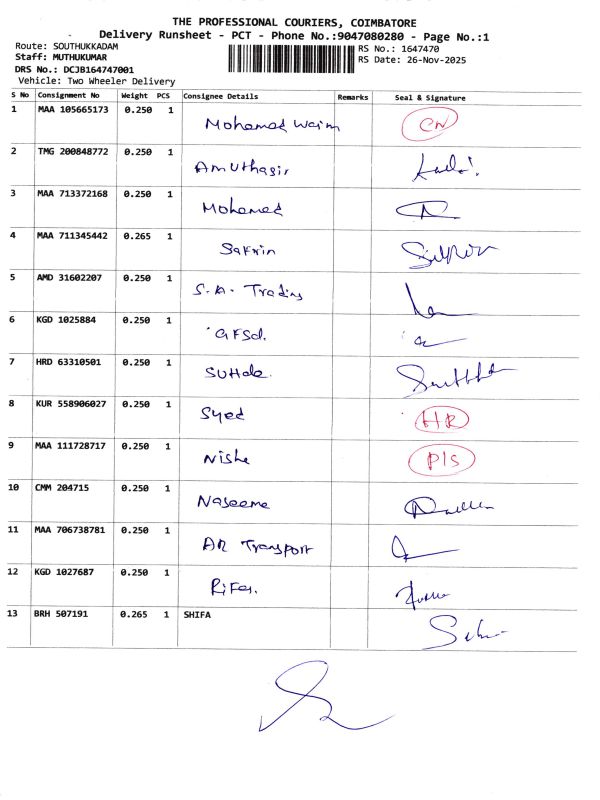 THE PROFESSIONAL COURIERS, COIMBATORE
Delivery Runsheet - PCT - Phone No.:9047080280 - Page No.:1
Route: SOUTHUKKADAM RS No.: 1647470
Staff: MUTHUKUMAR RS Date: 26-Nov-2025
DRS No.: DCJB164747001
Vehicle: Two Wheeler Delivery
S No Consignment No Weight PCS Consignee Details Remarks Seal & Signature
1 MAA 105665173 0.250 1 Mohamed CN
2 TMG 200848772 0.250 1 Amuthasir
3 MAA 713372168 0.250 1 Mohamed
4 MAA 711345442 0.265 1 Safrin
5 AMD 31602207 0.250 1 S.A. Trading
6 KGD 1025884 0.250 1
7 HRD 63310501 0.250 1
8 KUR 558906027 0.250 1 Syed HR
9 MAA 111728717 0.250 1 Nisha P/S
10 CMM 204715 0.250 1 Naseema
11 MAA 706738781 0.250 1 AR Transport
12 KGD 1027687 0.250 1
13 BRH 507191 0.265 1 SHIFA